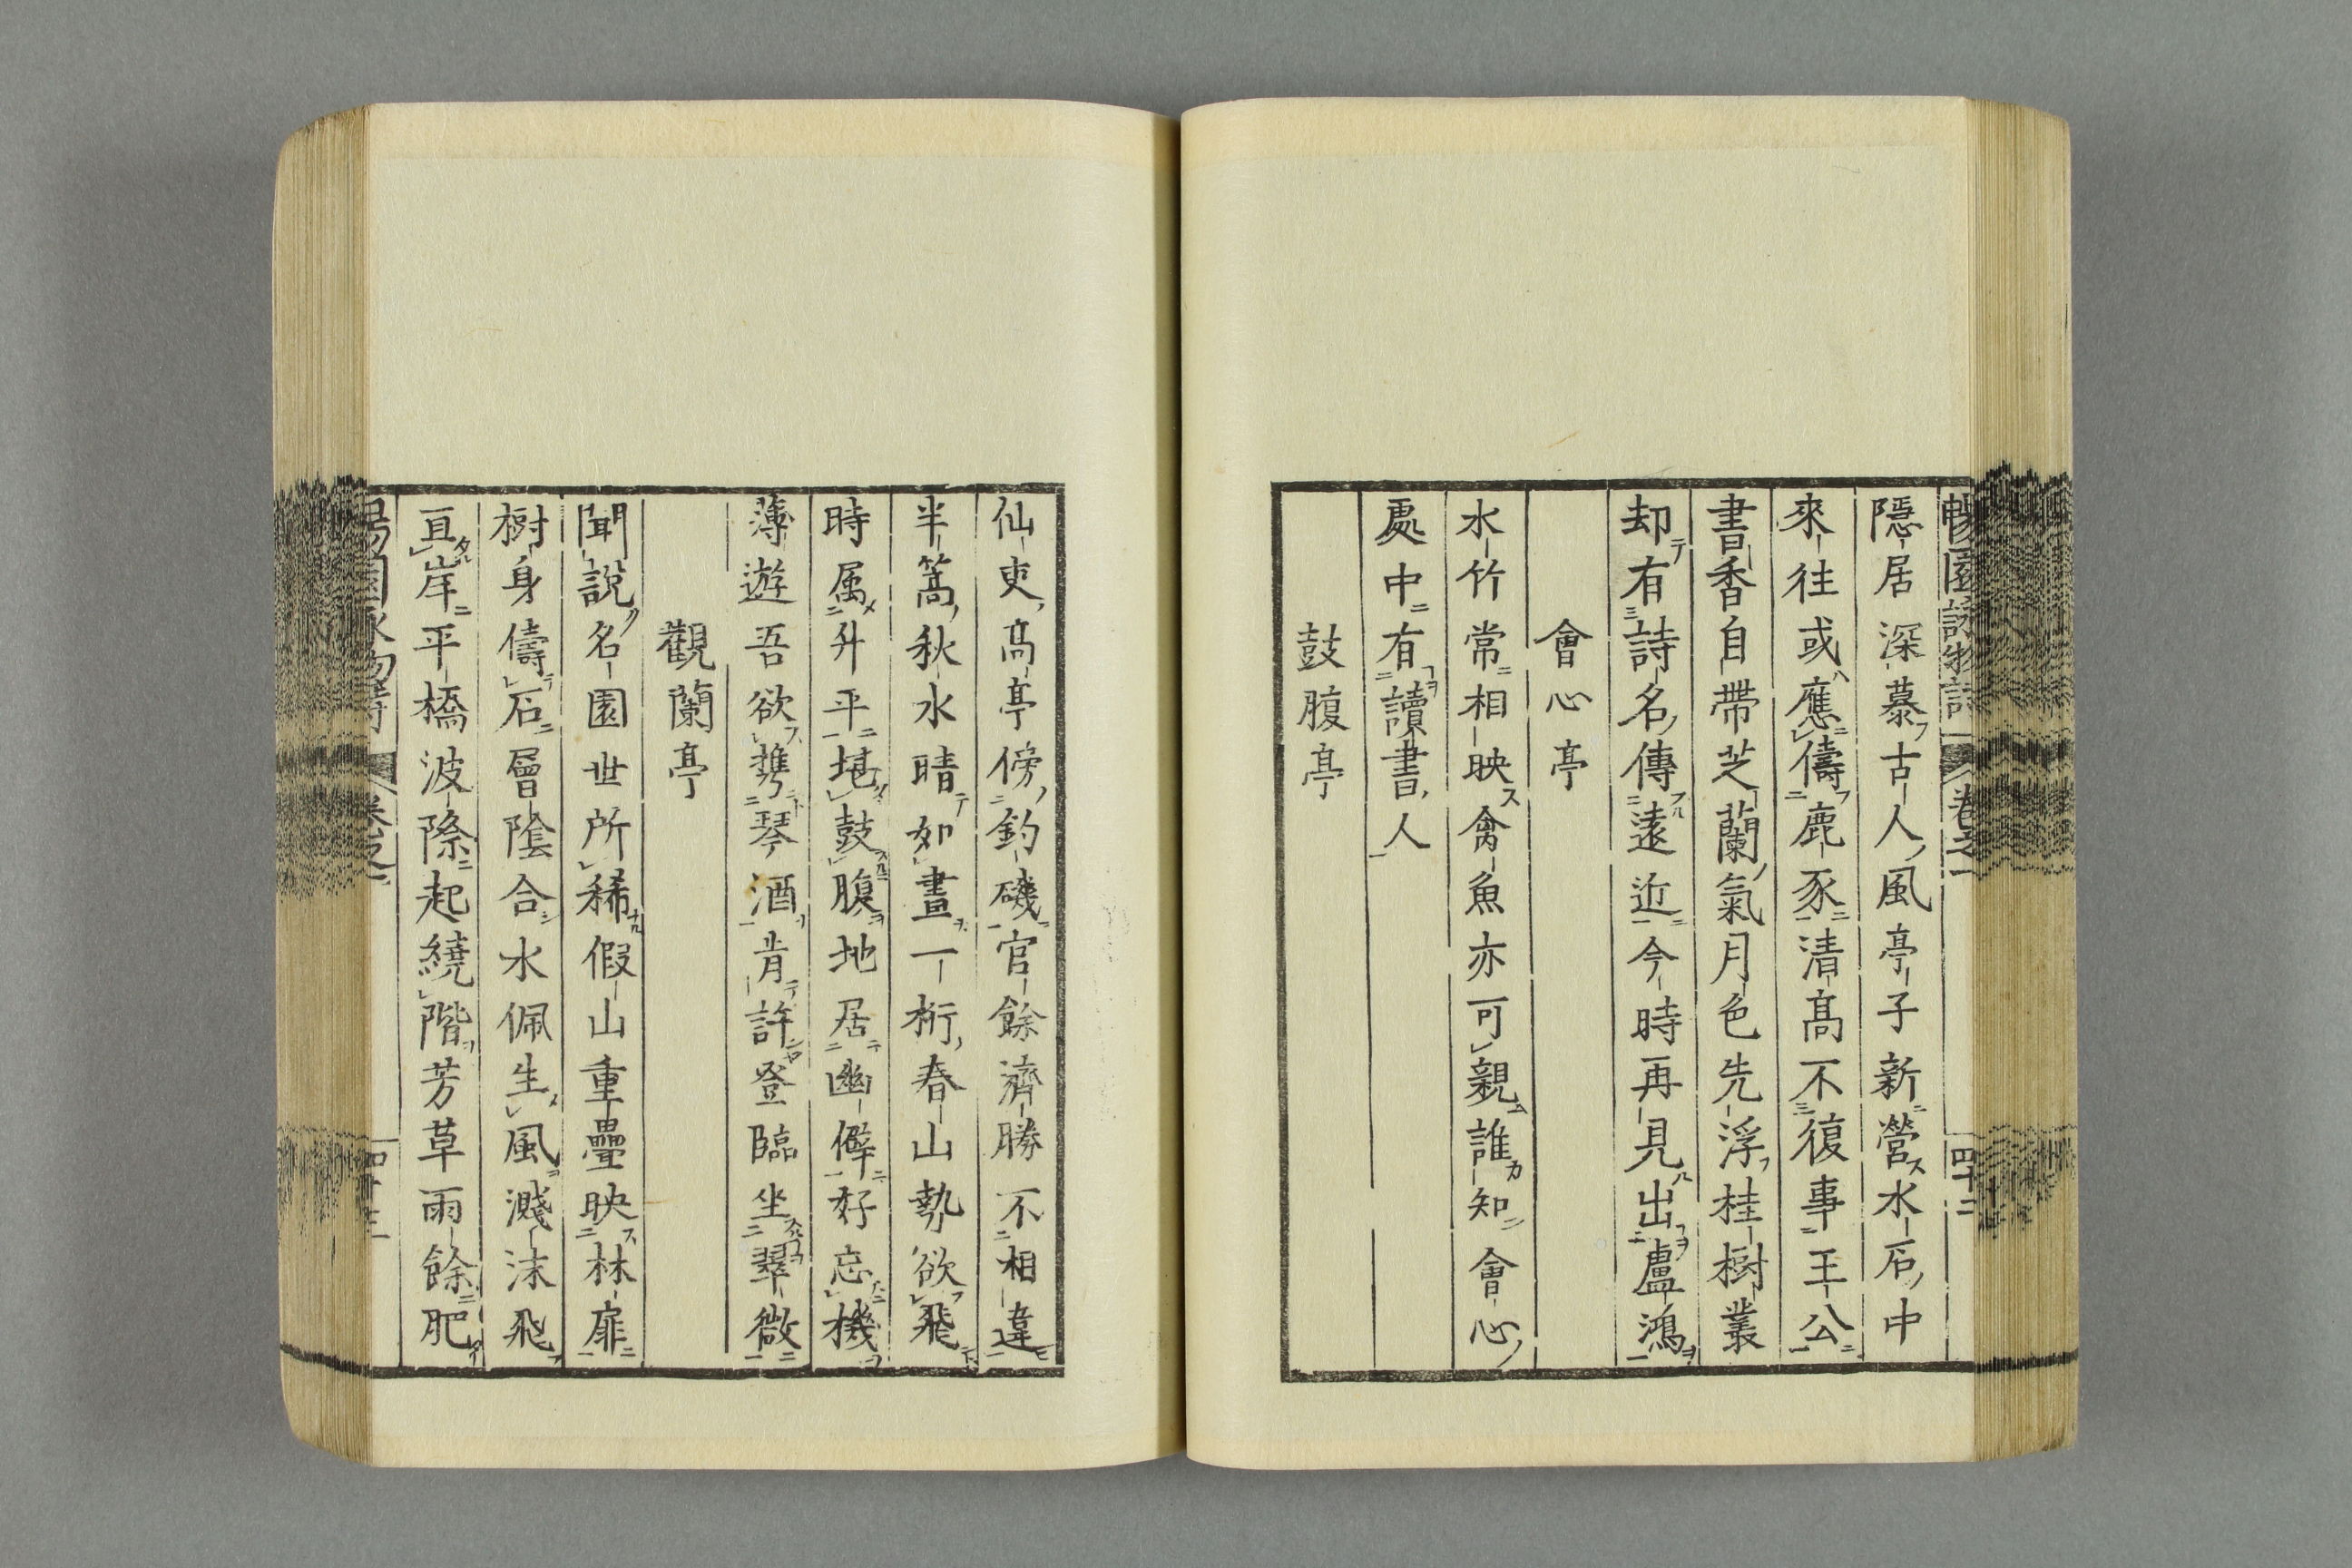 暢園詠物詩 卷之一 四十二
隱居深慕古人風亭子新營水石中
來往或應儔鹿豕清高不復事王公
書香自帶芝蘭氣月色先浮桂樹叢
却有詩名傳遠近今時再見出盧鴻
會心亭
水竹常相映禽魚亦可親誰知會心
處中有讀書人
鼓腹亭
仙吏高亭傍釣磯官餘濟勝不相違
半篙秋水晴如畫一桁春山勢欲飛
時属升平堪鼓腹地居幽僻好忘機
薄遊吾欲携琴酒肯許登臨坐翠微
觀蘭亭
聞說名園世所稀假山重疊映林扉
樹身儔石層陰合水佩生風濺沫飛
亙岸平橋波際起繞階芳草雨餘肥
暢園詠物詩 卷之一 四十三